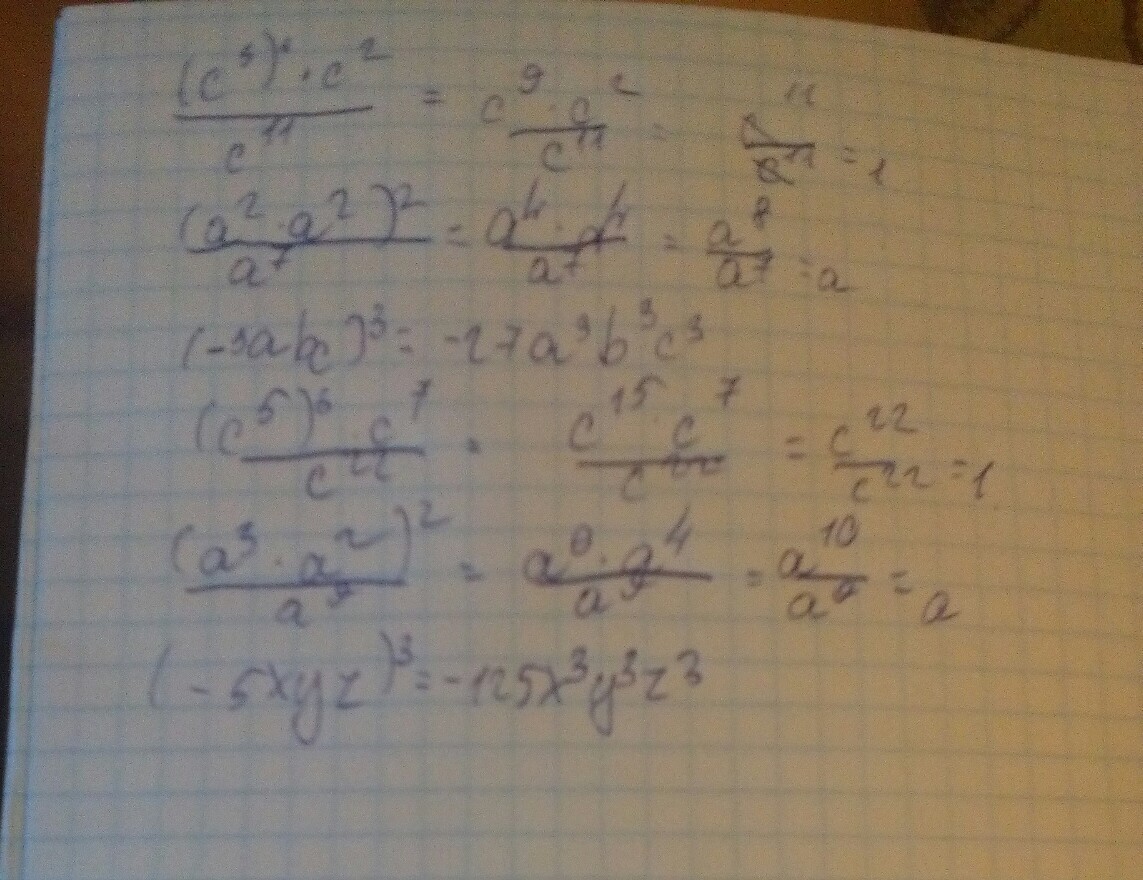 (c³)³ · c² / c¹¹ = c⁹ · c² / c¹¹ = c¹¹ / c¹¹ = 1
(a² · a²)² / a⁷ = a⁴ · a⁴ / a⁷ = a⁸ / a⁷ = a
(-3abc)³ = -27a³b³c³
(c⁵)³ · c⁷ / c²² = c¹⁵ · c⁷ / c²² = c²² / c²² = 1
(a³ · a²)² / a⁹ = a⁶ · a⁴ / a⁹ = a¹⁰ / a⁹ = a
(-5xyz)³ = -125x³y³z³